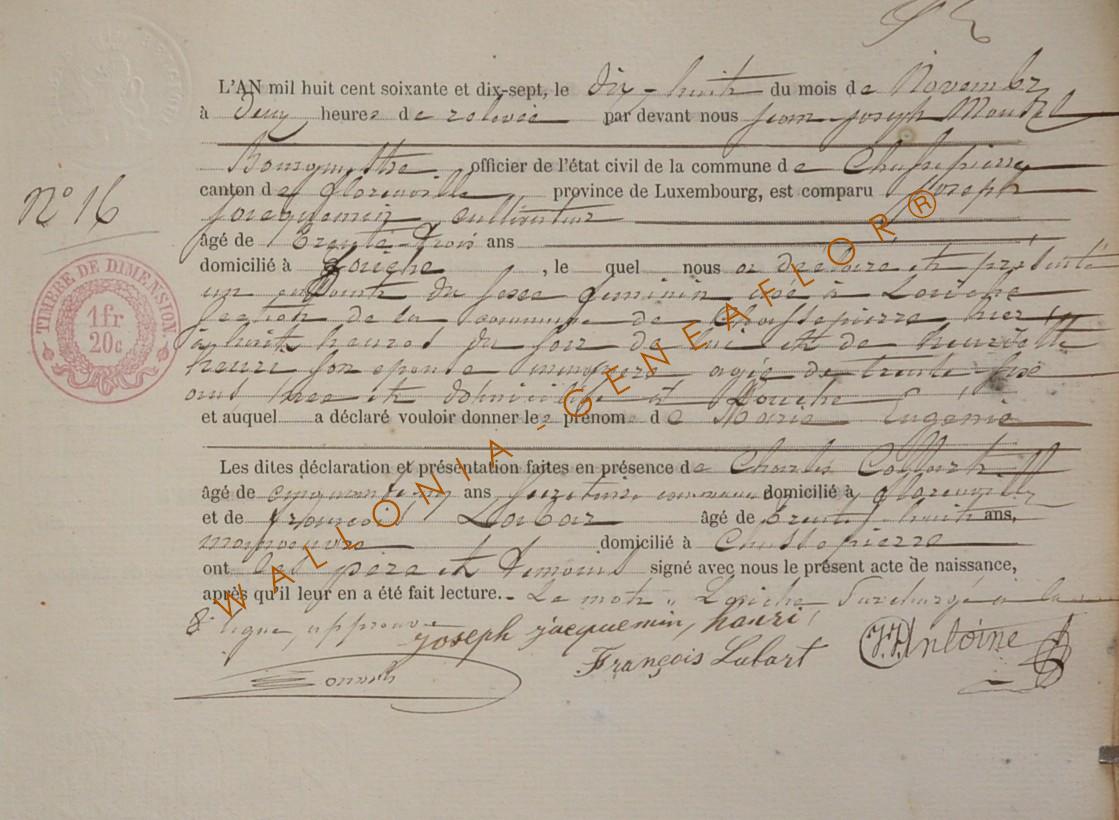 N° 16
TIMBRE DE DIMENSION
1fr
20c
L'AN mil huit cent soixante et dix-sept, le dix-huit du mois de Novembre
à deux heures de relevée par devant nous Jean Joseph
Bourgmestre officier de l'état civil de la commune de Chassepierre
canton de Florenville province de Luxembourg, est comparu Joseph
Jacquemin, cultivateur
âgé de trente-trois ans
domicilié à Laiche, le quel nous a déclaré et présenté
un enfant du sexe féminin née à Laiche
section de la commune de Chassepierre hier
à huit heures du soir de lui et de
henri son épouse ménagère agée de trente six
ans née et domiciliée à Laiche
et auquel a déclaré vouloir donner les prénom de Marie Eugénie
Les dites déclaration et présentation faites en présence de Charles Collart
âgé de ans secrétaire communal domicilié à Florenville
et de François Labar âgé de trente huit ans,
manoeuvre domicilié à Chassepierre
ont les père et témoins signé avec nous le présent acte de naissance,
après qu'il leur en a été fait lecture. - Le mot " Laiche surchargé à la
8e ligne approuvé
Joseph jacquemin, hanri,
François Labart
J.J. Antoine
WALLONIA - GENEAFLOR®